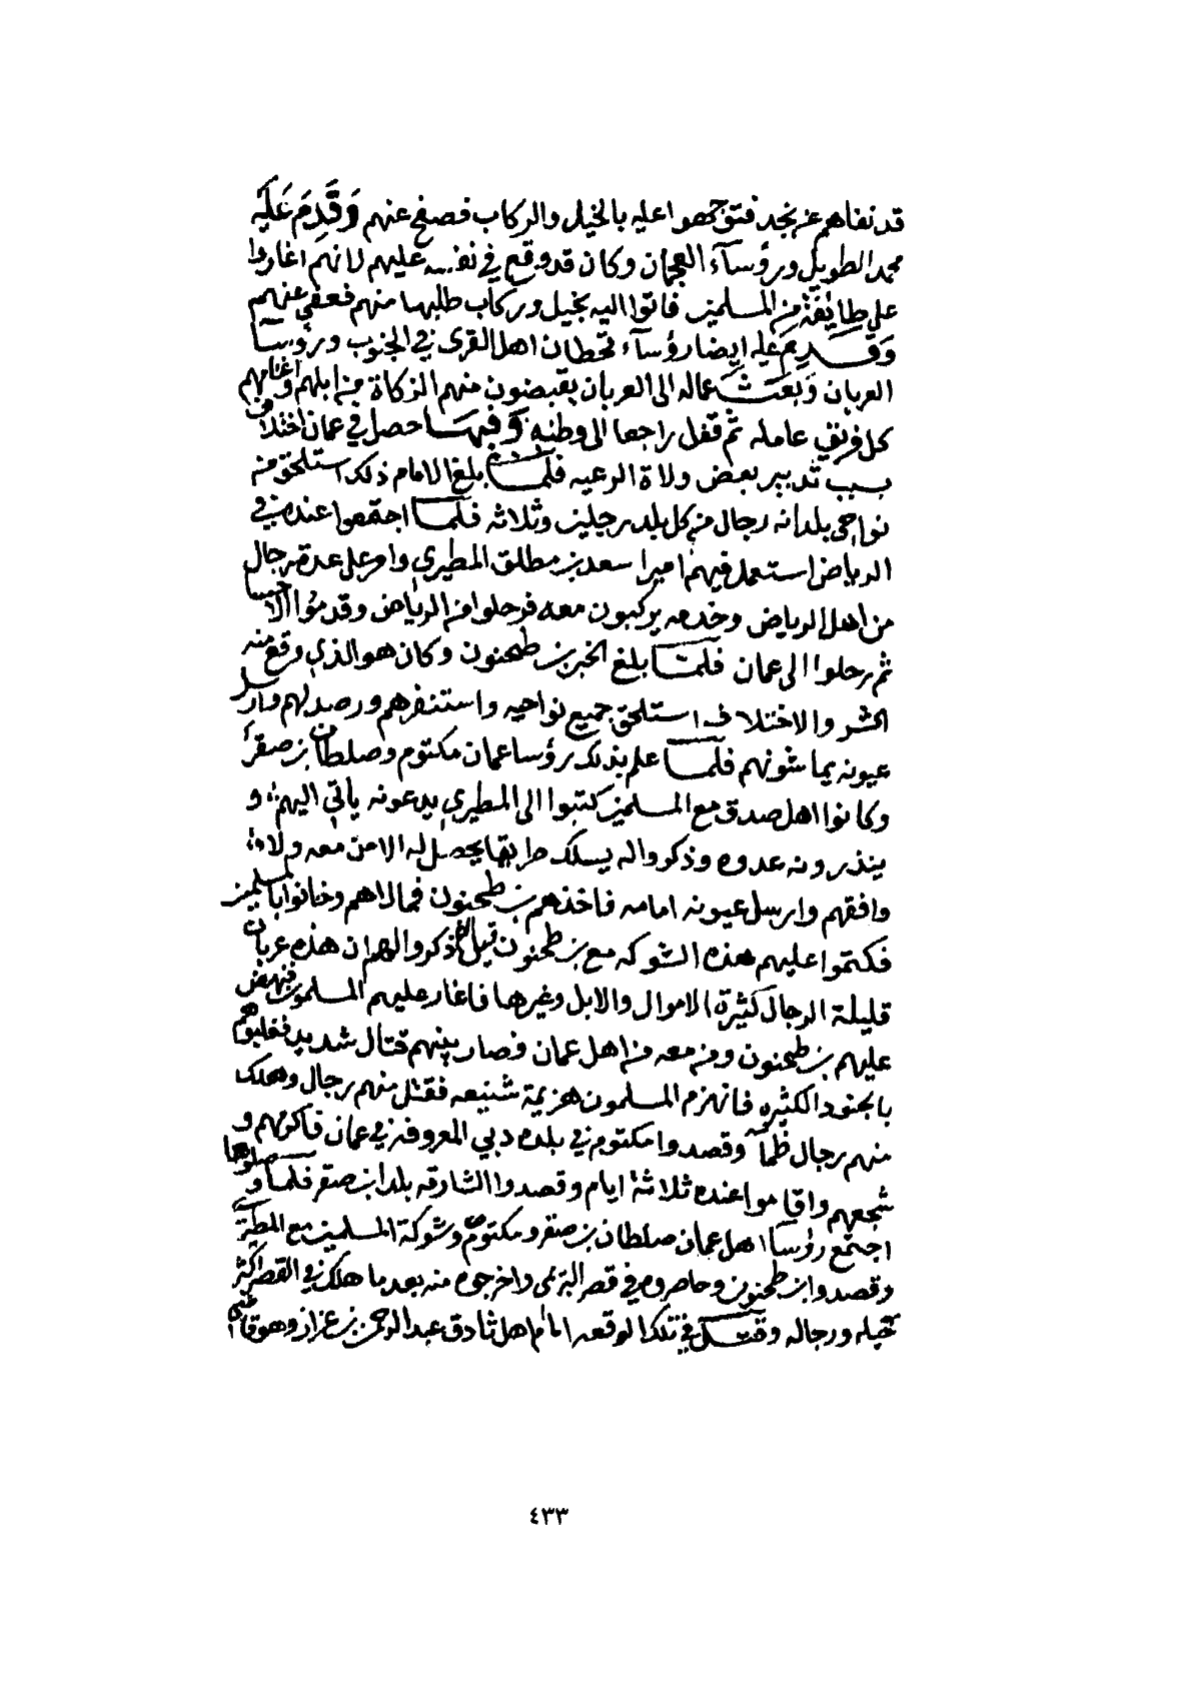 قد نفاهم عن نجد فتوجهوا عليه بالخيل والركاب فصفح عنهم وَقَدِمَ عَلَيْه
محمد الطويل ورؤسآء العجمان وكان قد وقع في نفسه عليهم لانهم اغاروا
على طايفة من المسلمين فاتوا اليه بخيل وركاب طلبها منهم فعفى عنهم
وَقَدِمَ عليه ايضا رؤسآء قحطان اهل القرى في الجنوب ورؤسآ
العربان وَبَعَثَ عماله الى العربان يقبضون منهم الزكاة من ابلهم واغنامهم
كل فريق عامله ثم قفل راجعا الى وطنه وَفِيهَا حصل في عمان اختلاف
بسبب تدبير بعض ولاة الرعيه فلما بلغ الامام ذلك استلحق من
نواحي بلدانه رجال من كل بلد رجلين وثلاثه فلما اجتمعوا عنده في
الرياض استعمل فيهم اميرا سعد بن مطلق المطيري وامر على عدة رجال
من اهل الرياض وخدمه يركبون معه فرحلوا من الرياض وقدموا الاحسا
ثم رحلوا الى عمان فلما بلغ الخبر بن طحنون وكان هو الذي وقع منه
الشر والاختلاف استلحق جميع نواحيه واستنفرهم ورصد لهم وارسل
عيونه يماشونهم فلما علم بذلك رؤسا عمان مكتوم وصلطان بن صقر
وكانوا اهل صدق مع المسلمين كتبوا الى المطيري يدعونه ياتي اليهم و
ينذرونه عدوه وذكروا له يسلك طريقا يحصل له الامن معه ولا
وافقهم وارسل عيونه امامه فاخذهم بن طحنون فمالاهم وخانوا بالمسلمين
فكتموا عليهم هذه الشوكه مع بن طحنون وذكروا لهم ان هذه عربان
قليلة الرجال كثيرة الاموال والابل وغيرها فاغار عليهم المسلمون فنهض
عليهم بن طحنون ومن معه من اهل عمان فصار بينهم قتال شديد فغلبوهم
بالجنود الكثيره فانهزم المسلمون هزيمة شنيعه فقتل منهم رجال وهلك
منهم رجال ظمآ وقصدوا مكتوم في بلده دبي المعروفه في عمان فاكرمهم و
شجعهم واقاموا عنده ثلاثة ايام وقصدوا الشارقه بلد ابن صقر فلما وصلوها
اجتمع رؤسآ اهل عمان صلطان بن صقر ومكتوم وشوكة المسلمين مع المطيري
وقصدوا ابن طحنون وحاصروه في قصر البريمي واخرجوه منه بعد ما هلك في القصر اكثر
خيله ورجاله وقتل في تلك الوقعه امام اهل ثادق عبد الرحمن بن عزاز وهو